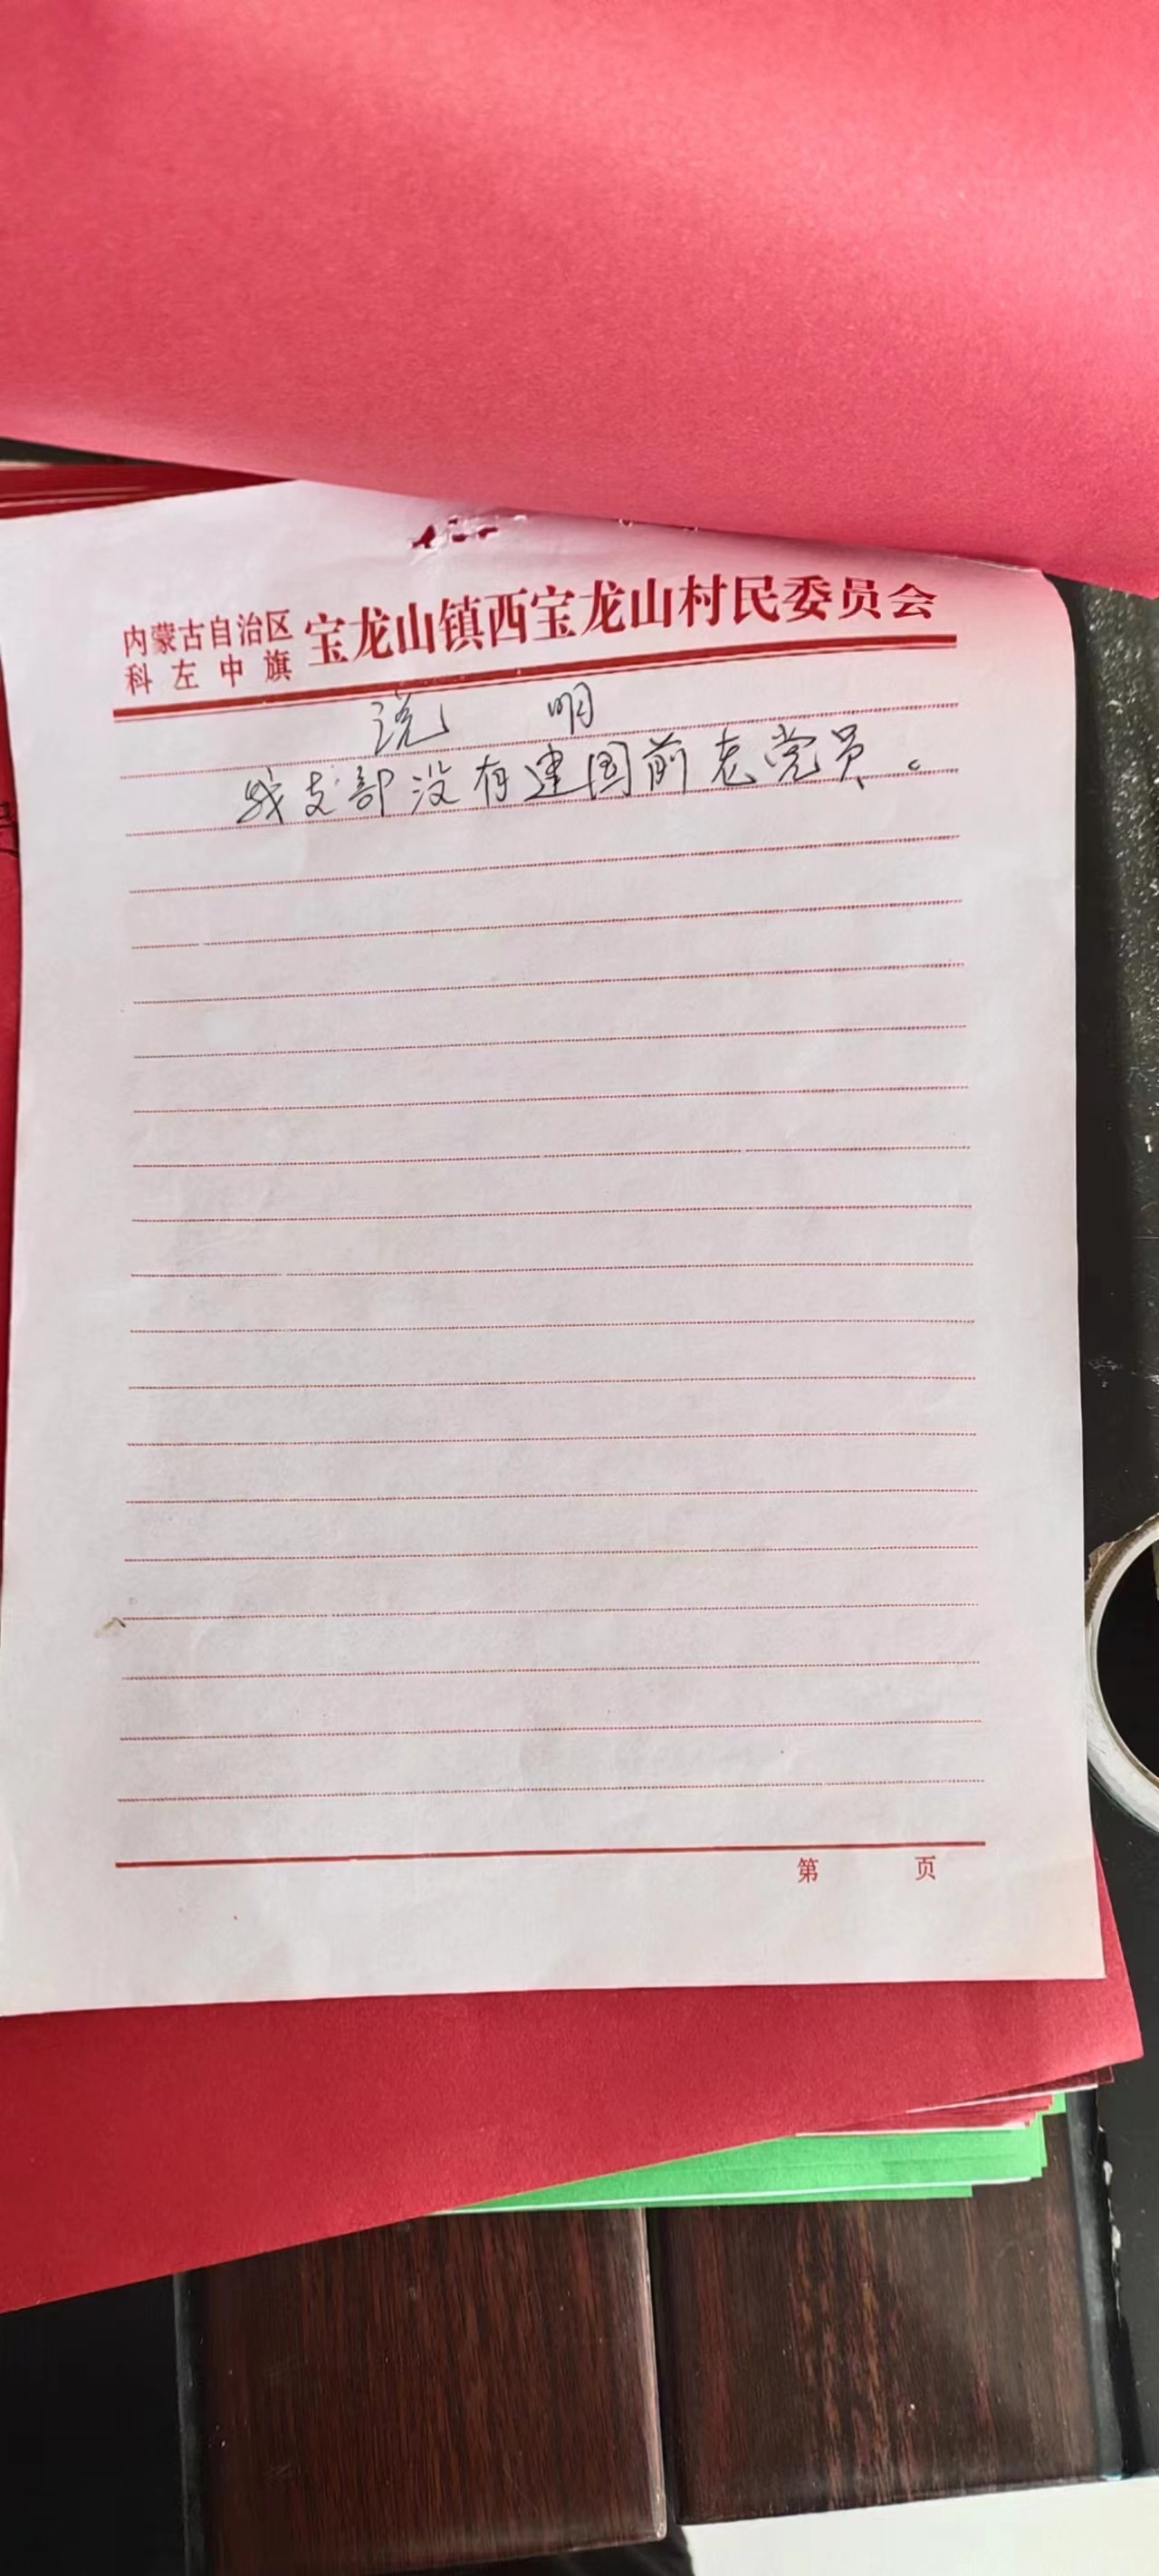 内蒙古自治区
科左中旗
宝龙山镇西宝龙山村民委员会
说 明
我支部没有建国前老党员。
第 页